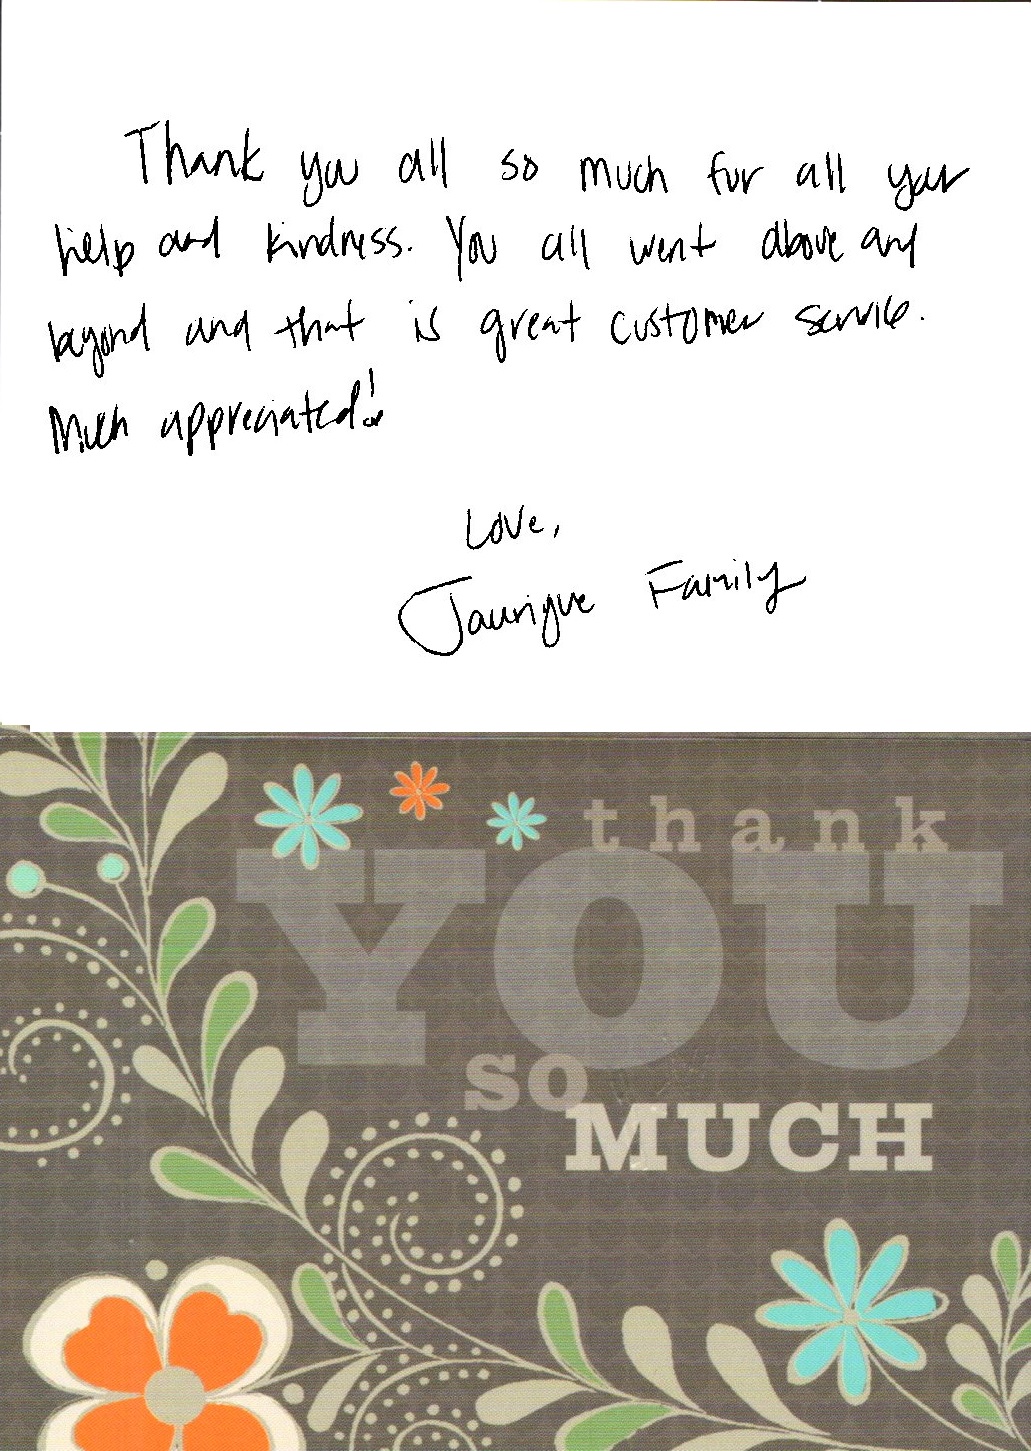 Thank you all so much for all your
help and kindness. You all went above and
beyond and that is great customer service.
Much appreciated!
Love,
Jaurigue Family
thank
YOU
so
MUCH